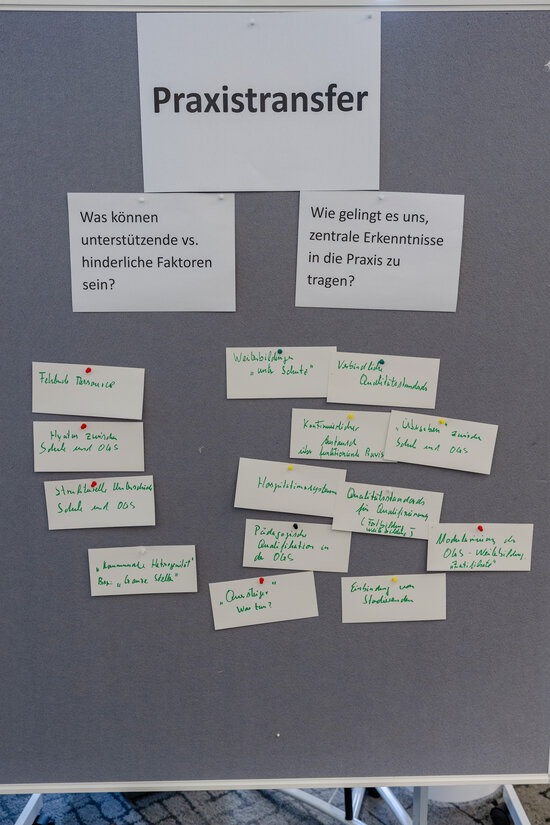 Praxistransfer
Was können
unterstützende vs.
hinderliche Faktoren
sein?
Wie gelingt es uns,
zentrale Erkenntnisse
in die Praxis zu
tragen?
Fehlende Ressource
zwischen
Schule und OGS
Strukturelle Unterschiede
Schule und OGS
"Kommunale Heterogenität"
Bsp: "Ganze Stelle"
Weiterbildungen
"unter Schutz"
Verbindliche
Qualitätsstandards
Kontinuierlicher
Austausch
über funktionierende Praxis
zwischen
Schule und OGS
Hospitationssystem
Qualitätsstandards
für Qualifizierung
(Fortbildung,
Weiterbildung)
Pädagogische
Qualifikation in
der OGS
Modularisierung der
OGS-Weiterbildung.
"Zertifikate"
"Quereinsteiger"
Was tun?
Einbindung von
Studierenden